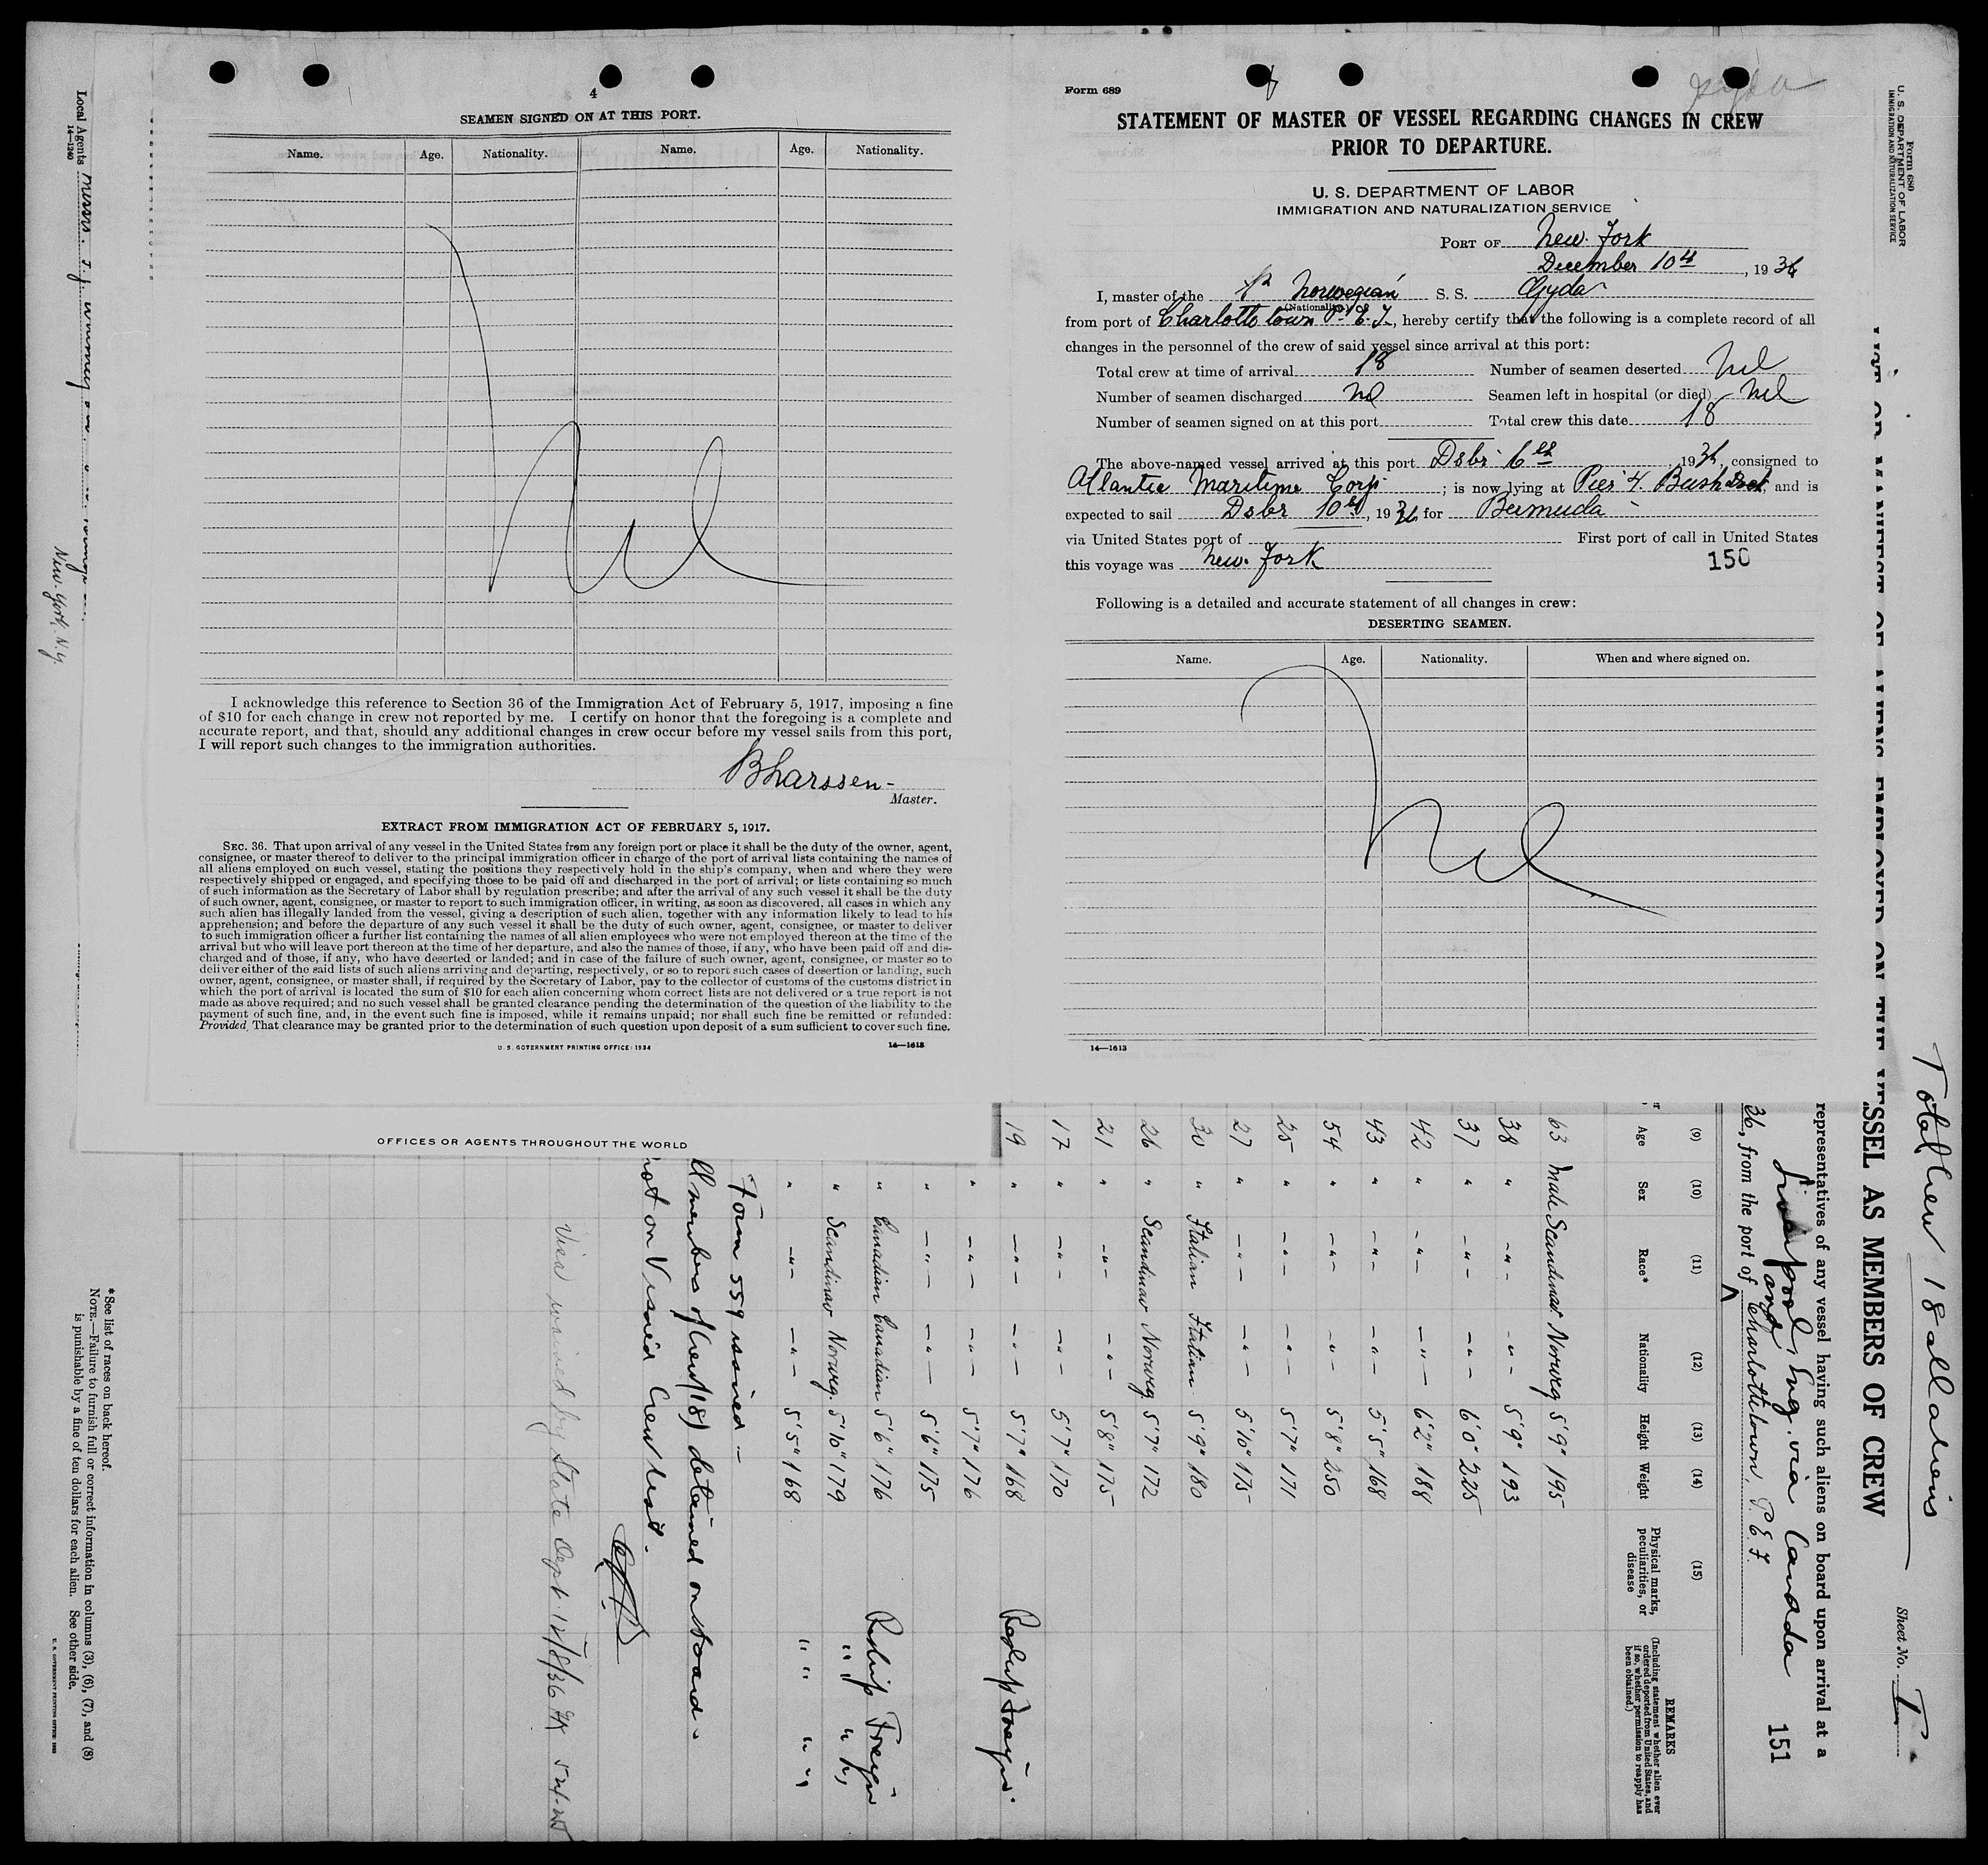 4
SEAMEN SIGNED ON AT THIS PORT.
Name. Age. Nationality. Name. Age. Nationality.
Nil
I acknowledge this reference to Section 36 of the Immigration Act of February 5, 1917, imposing a fine
of $10 for each change in crew not reported by me. I certify on honor that the foregoing is a complete and
accurate report, and that, should any additional changes in crew occur before my vessel sails from this port,
I will report such changes to the immigration authorities.
Master.
EXTRACT FROM IMMIGRATION ACT OF FEBRUARY 5, 1917.
SEC. 36. That upon arrival of any vessel in the United States from any foreign port or place it shall be the duty of the owner, agent,
consignee, or master thereof to deliver to the principal immigration officer in charge of the port of arrival lists containing the names of
all aliens employed on such vessel, stating the positions they respectively hold in the ship's company, when and where they were
respectively shipped or engaged, and specifying those to be paid off and discharged in the port of arrival; or lists containing so much
of such information as the Secretary of Labor shall by regulation prescribe; and after the arrival of any such vessel it shall be the duty
of such owner, agent, consignee, or master to report to such immigration officer, in writing, as soon as discovered, all cases in which any
such alien has illegally landed from the vessel, giving a description of such alien, together with any information likely to lead to his
apprehension; and before the departure of any such vessel it shall be the duty of such owner, agent, consignee, or master to deliver
to such immigration officer a further list containing the names of all alien employees who were not employed thereon at the time of the
arrival but who will leave port thereon at the time of her departure, and also the names of those, if any, who have been paid off and dis-
charged and of those, if any, who have deserted or landed; and in case of the failure of such owner, agent, consignee, or master so to
deliver either of the said lists of such aliens arriving and departing, respectively, or so to report such cases of desertion or landing, such
owner, agent, consignee, or master shall, if required by the Secretary of Labor, pay to the collector of customs of the customs district in
which the port of arrival is located the sum of $10 for each alien concerning whom correct lists are not delivered or a true report is not
made as above required; and no such vessel shall be granted clearance pending the determination of the question of the liability to the
payment of such fine, and, in the event such fine is imposed, while it remains unpaid; nor shall such fine be remitted or refunded:
Provided, That clearance may be granted prior to the determination of such question upon deposit of a sum sufficient to cover such fine.
U. S. GOVERNMENT PRINTING OFFICE: 1934 14—1613
OFFICES OR AGENTS THROUGHOUT THE WORLD
Form 689
Gyda
STATEMENT OF MASTER OF VESSEL REGARDING CHANGES IN CREW
PRIOR TO DEPARTURE.
U. S. DEPARTMENT OF LABOR
IMMIGRATION AND NATURALIZATION SERVICE
PORT OF New. York
December 10th, 1936
I, master of the Norwegian S. S. Gyda
(Nationality)
from port of Charlottetown P. E. I., hereby certify that the following is a complete record of all
changes in the personnel of the crew of said vessel since arrival at this port:
Total crew at time of arrival 18 Number of seamen deserted Nil
Number of seamen discharged Nil Seamen left in hospital (or died) Nil
Number of seamen signed on at this port Total crew this date 18
The above-named vessel arrived at this port Dsbr 6th, 1936, consigned to
Atlantic Maritime Corp; is now lying at Pier 4. Bush Dock, and is
expected to sail Dsbr 10th, 1936 for Bermuda
via United States port of First port of call in United States
this voyage was New. York
150
Following is a detailed and accurate statement of all changes in crew:
DESERTING SEAMEN.
Name. Age. Nationality. When and where signed on.
Nil
14—1613
Form 680
U. S. DEPARTMENT OF LABOR
IMMIGRATION AND NATURALIZATION SERVICE
Total Crew 18 all aliens
Sheet No. 1
SSEL AS MEMBERS OF CREW
representatives of any vessel having such aliens on board upon arrival at a
Liverpool, Eng. via Canada
and
36, from the port of Charlottetown, P. E. I.
151
(9) (10) (11) (12) (13) (14) (15)
Age Sex Race* Nationality Height Weight Physical marks, peculiarities, or disease
REMARKS
(Including statement whether alien ever ordered deported from United States, and if so, whether permission to reapply has been obtained.)
63 Male Scandinav. Norweg 5'9" 195
38 " —"— —"— 5'9" 193
37 " —"— —"— 6'0" 225
42 " —"— —"— 6'2" 188
43 " —"— —"— 5'5" 168
54 " —"— —"— 5'8" 250
25 " —"— —"— 5'7" 171
27 " —"— —"— 5'10" 175
30 " Italian Italian 5'9" 180
26 " Scandinav Norweg. 5'7" 172
21 " —"— —"— 5'8" 175
17 " —"— —"— 5'7" 170
19 " —"— —"— 5'7" 168 Reship Foreign.
" —"— —"— 5'7" 176
" —"— —"— 5'6" 175
" Canadian Canadian 5'6" 176 Reship Foreign
" Scandinav Norweg. 5'10" 179 " " " "
" —"— —"— 5'5" 168 " " " "
Form 559 issued —
ll members of Crew (18) detained on board.
not on Visaed Crew List.
Visa waived by State Dept. 12/8/36
*See list of races on back hereof.
NOTE.—Failure to furnish full or correct information in columns (3), (6), (7), and (8)
is punishable by a fine of ten dollars for each alien. See other side.
Local Agents Messrs. T. J.
14—1240
New York N.Y.